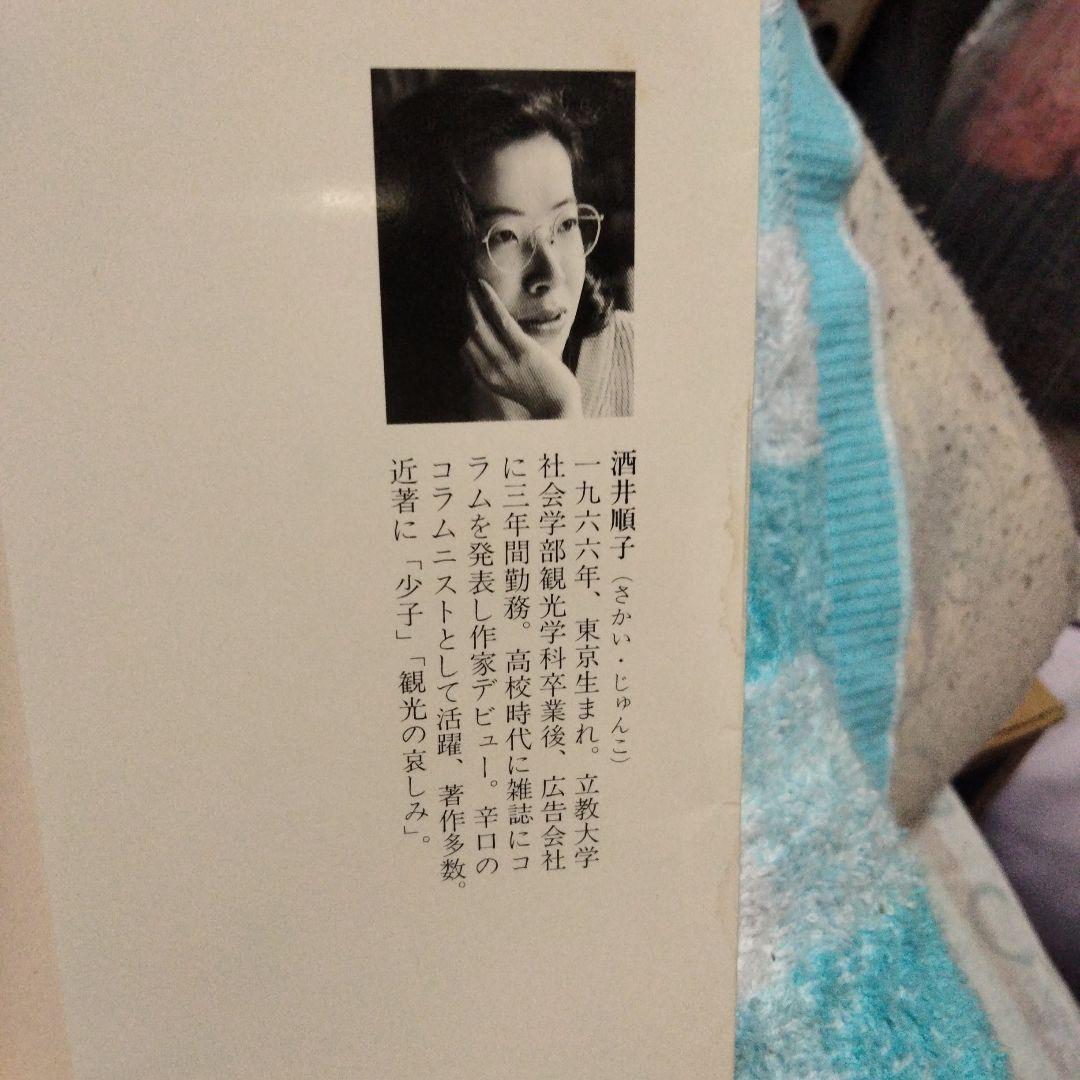 酒井順子（さかい・じゅんこ）
一九六六年、東京生まれ。立教大学
社会学部観光学科卒業後、広告会社
に三年間勤務。高校時代に雑誌にコ
ラムを発表し作家デビュー。辛口の
コラムニストとして活躍、著作多数。
近著に「少子」「観光の哀しみ」。